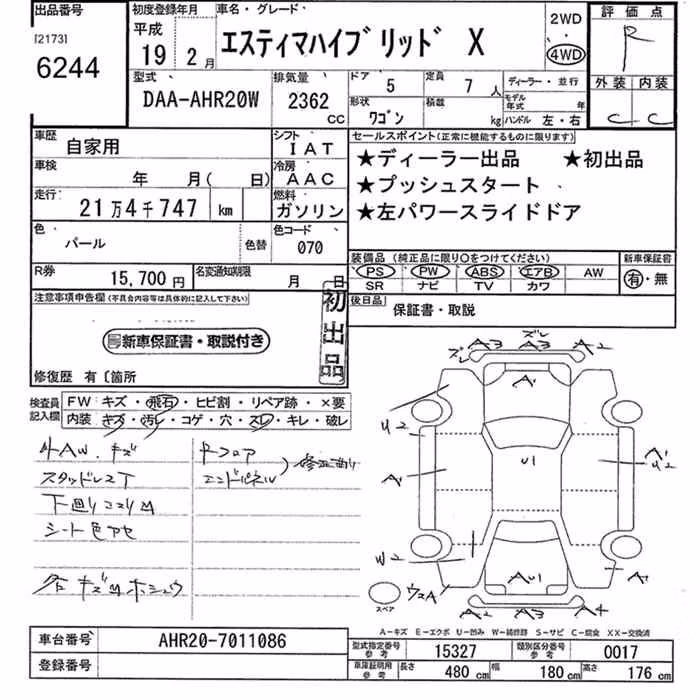 出品番号
[2173]
6244
初度登録年月
平成
19 2月
車名・グレード
エスティマハイブリッド X
2WD
4WD
評価点
R
外装 内装
C C
型式
DAA-AHR20W
排気量
2362
CC
ドア 5
定員 7人
形状 ワゴン
積載 kg
ディーラー・並行
モデル年式 年
ハンドル 左・右
車歴
自家用
シフト
IAT
車検
年 月( 日)
冷房
AAC
走行
21万4千747 km
燃料
ガソリン
色
パール
色替
色コード
070
R券
15,700円
名変通知期限
月 日
セールスポイント(正常に機能するものに限ります)
★ディーラー出品 ★初出品
★プッシュスタート
★左パワースライドドア
装備品(純正品に限り○をつけてください)
PS PW ABS エアB AW
SR ナビ TV カワ
新車保証書
有・無
後日品
保証書・取説
注意事項申告欄(不具合内容等は具体的に記入して下さい)
新車保証書・取説付き
初出品
修復歴 有〔箇所
検査員記入欄
FW キズ・飛石・ヒビ割・リペア跡・×要
内装 キズ・汚レ・コゲ・穴・スレ・キレ・破レ
4AW.キズ
スタッドレスT
下廻りコスリ凹
シート色アセ
各キズ凹ホシュウ
Rフロア
エンドパネル
ズレ
ズレ A3 A3 A2
A1
U2
A1
U1
A1
U2
W2
AU1
A1
スペア
ウスA
A2 A3 A4
A-キズ E-エクボ U-凹み W-補修跡 S-サビ C-腐食 XX-交換済
車台番号
AHR20-7011086
登録番号
型式指定番号
参考
15327
類別区分番号
参考
0017
車庫証明用
参考
長さ 480cm
幅 180cm
高さ 176cm